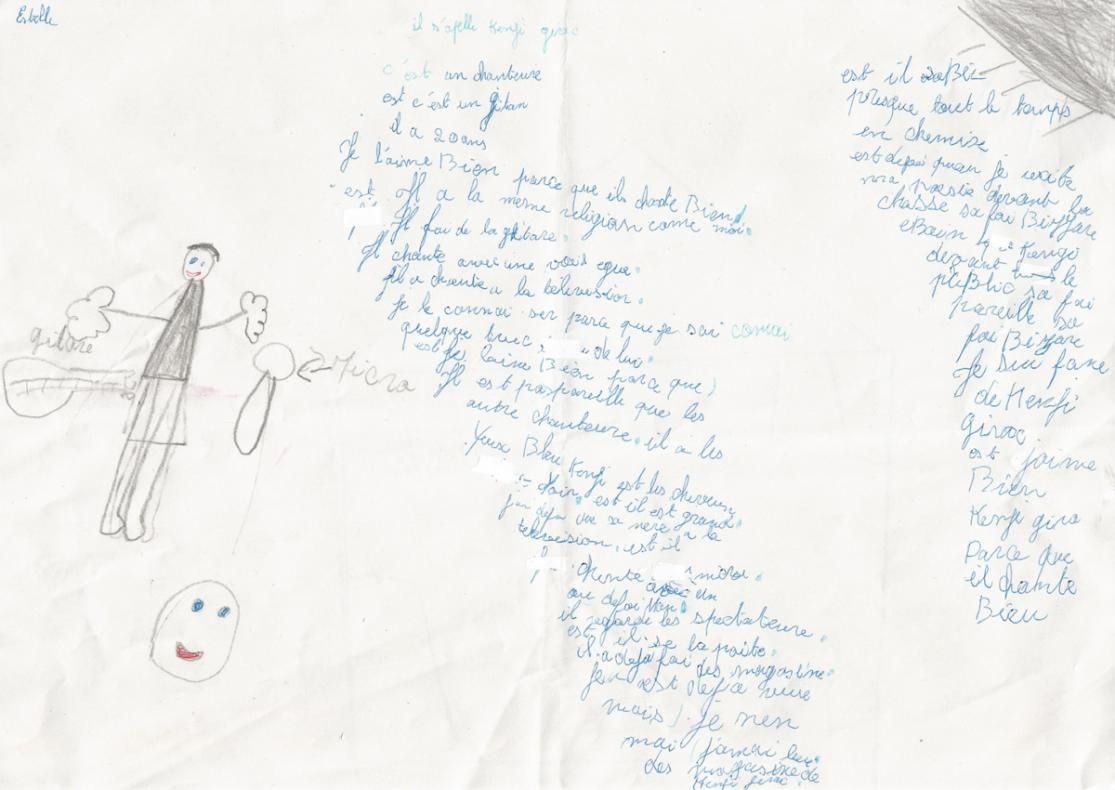 Estelle
il s'apelle Kenji girac
c'est un chanteure
est c'est un gitan
il a 20 ans
Je l'aime Bien parce que il chante Bien
est Il a la meme religion come moi.
Il fai de la gitare.
Il chante avec une voix
Il a chante a la television.
Je le connai ser parce que je sai connai
quelque truc de lui
est je l'aime Bien parce que
Il est pas pareille que les
autre chanteure. il a les
Yeux Bleu Kenji est les cheveux
est il est grand.
j'ai deja vue sa mere a la
television. est il
chante avec un micro.
il regarde les spectateure.
est il se la poite.
il a deja fai des magasine.
Je n est deja vue
mais je nen
mai jamai lu
des magasine de
Kenji girac.
gitare
Micro
est il saBille
presque tout le temps
en chemise
est depui quan je recite
ma poesie devant la
chasse sa fai Bizzare
eBain Kenji
devant le
puBlic sa fai
pareille sa
fai Bizzare
Je sui fane
de Kenji
girac.
est j'aime
Bien
Kenji gira
Parce que
il chante
Bien